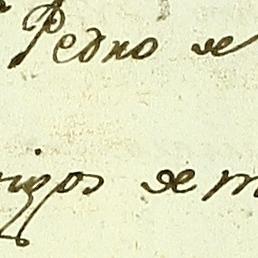 Pedro de
igos de m